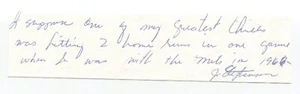 I suppose one of my greatest thrills
was hitting 2 home runs in one game
when I was with the Mets in 1966.
J. Stephenson